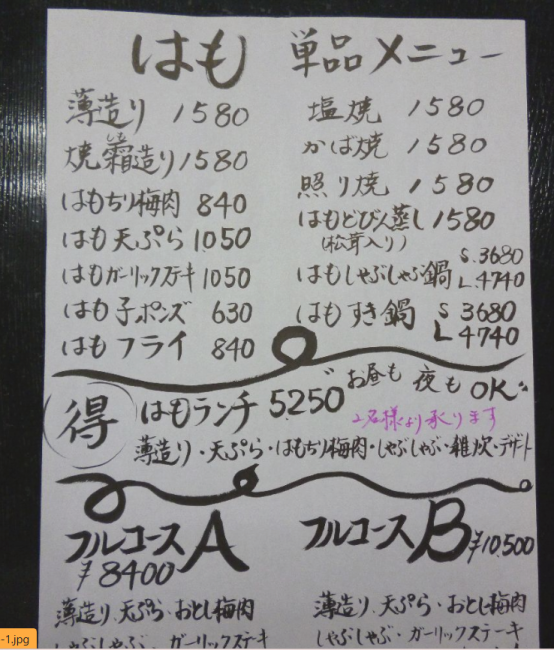 はも 単品メニュー
薄造り 1580
焼霜造り 1580
はもちり梅肉 840
はも天ぷら 1050
はもガーリックステーキ 1050
はも子ポンズ 630
はもフライ 840
塩焼 1580
かば焼 1580
照り焼 1580
はもどびん蒸し 1580
(松茸入り)
はもしゃぶしゃぶ鍋 S.3680
L 4740
はもすき鍋 S 3680
L 4740
得 はもランチ 5250 お昼も 夜も OK
2名様より承ります
薄造り・天ぷら・はもちり梅肉・しゃぶしゃぶ・雑炊・デザート
フルコース A
¥8400
薄造り・天ぷら・おとし梅肉
しゃぶしゃぶ・ガーリックステキ
フルコース B ¥10,500
薄造り・天ぷら・おとし梅肉
しゃぶしゃぶ・ガーリックステーキ
-1.jpg